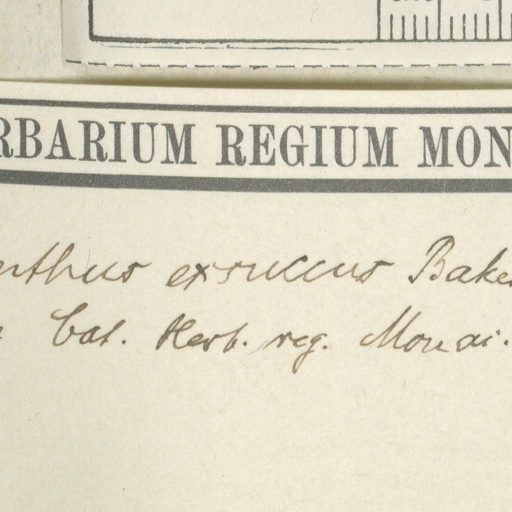 RBARIUM REGIUM MON
nthus exsuccus Baker
Cat. Herb. reg. Monai.